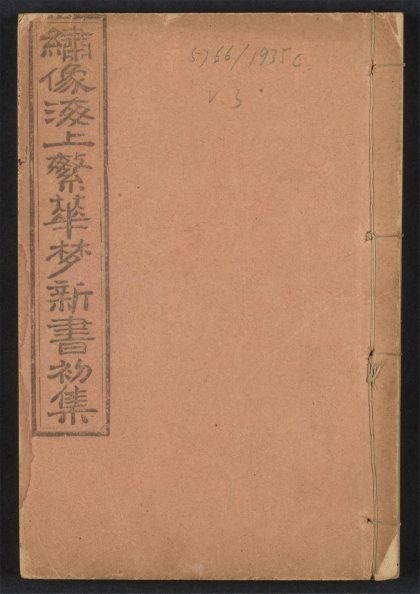 繡像海上繁華梦新書初集
5766/1935c
v.3